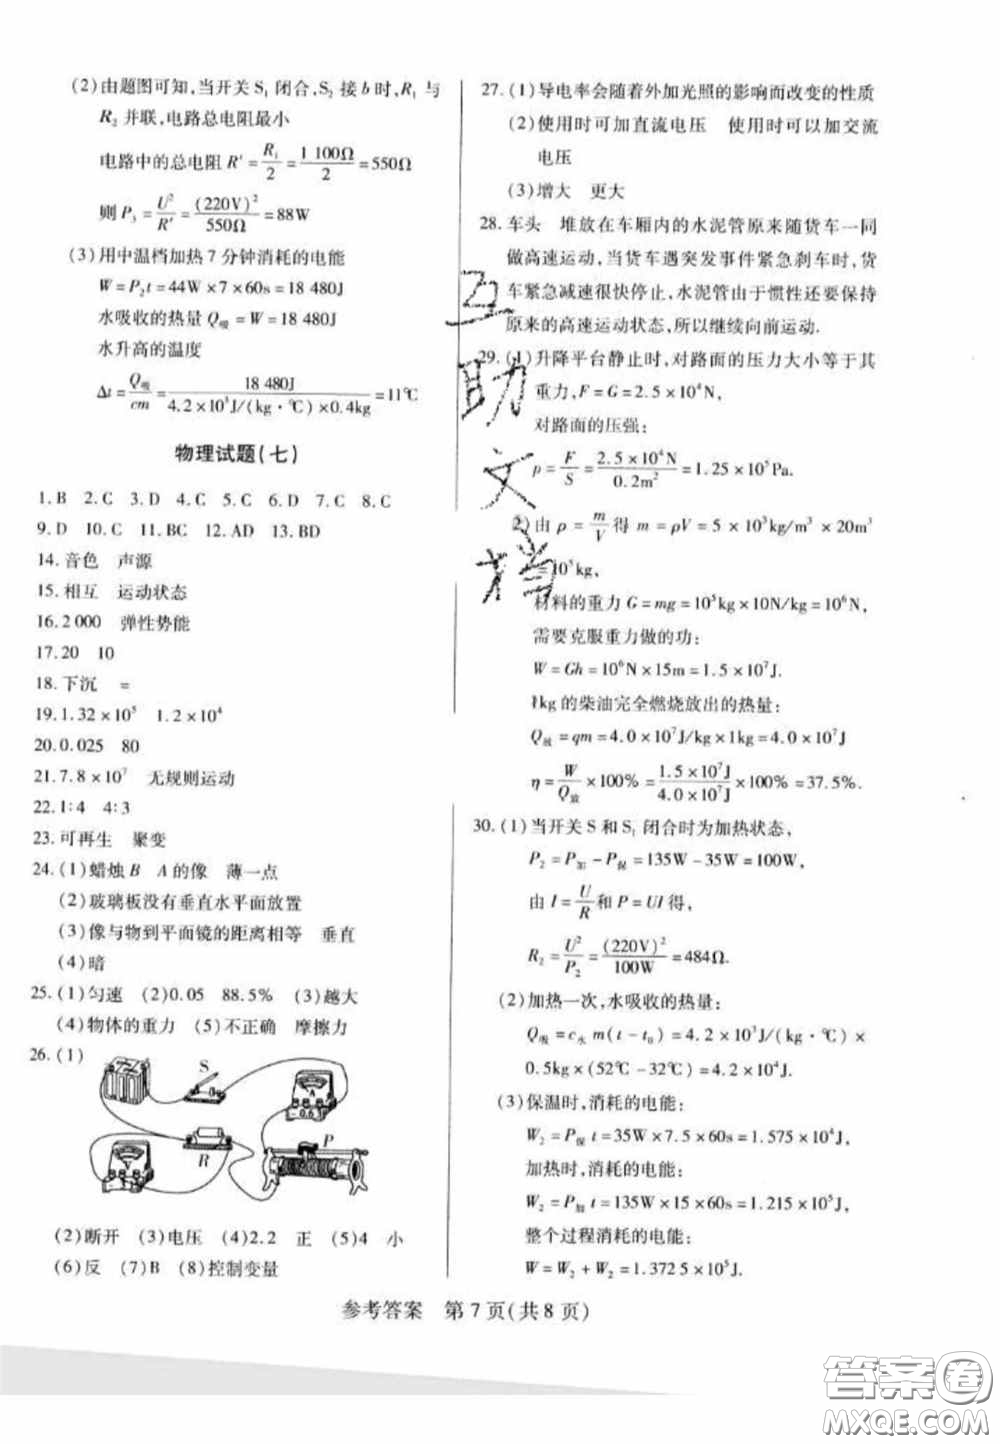 (2)由题图可知,当开关 S₁ 闭合,S₂ 接 b 时,R₁ 与
R₂ 并联,电路总电阻最小
电路中的总电阻 R' = R₁/2 = 1 100Ω/2 = 550Ω
则 P₃ = U²/R' = (220V)²/550Ω = 88W
(3)用中温档加热 7 分钟消耗的电能
W = P₂t = 44W × 7 × 60s = 18 480J
水吸收的热量 Q吸 = W = 18 480J
水升高的温度
Δt = Q吸/cm = 18 480J/4.2×10³J/(kg·℃)×0.4kg = 11℃
物理试题(七)
1.B 2.C 3.D 4.C 5.C 6.D 7.C 8.C
9.D 10.C 11.BC 12.AD 13.BD
14.音色 声源
15.相互 运动状态
16.2 000 弹性势能
17.20 10
18.下沉 =
19.1.32×10⁵ 1.2×10⁴
20.0.025 80
21.7.8×10⁷ 无规则运动
22.1:4 4:3
23.可再生 聚变
24.(1)蜡烛 B A 的像 薄一点
(2)玻璃板没有垂直水平面放置
(3)像与物到平面镜的距离相等 垂直
(4)暗
25.(1)匀速 (2)0.05 88.5% (3)越大
(4)物体的重力 (5)不正确 摩擦力
26.(1)
S
A
-0.6
V
R
P
(2)断开 (3)电压 (4)2.2 正 (5)4 小
(6)反 (7)B (8)控制变量
27.(1)导电率会随着外加光照的影响而改变的性质
(2)使用时可加直流电压 使用时可以加交流
电压
(3)增大 更大
28.车头 堆放在车厢内的水泥管原来随货车一同
做高速运动,当货车遇突发事件紧急刹车时,货
车紧急减速很快停止,水泥管由于惯性还要保持
原来的高速运动状态,所以继续向前运动.
29.(1)升降平台静止时,对路面的压力大小等于其
重力,F = G = 2.5×10⁴N,
对路面的压强:
p = F/S = 2.5×10⁴N/0.2m² = 1.25×10⁵Pa.
2)由 ρ = m/V 得 m = ρV = 5×10³kg/m³ × 20m³
= 10⁵kg,
材料的重力 G = mg = 10⁵kg×10N/kg = 10⁶N,
需要克服重力做的功:
W = Gh = 10⁶N×15m = 1.5×10⁷J.
1kg 的柴油完全燃烧放出的热量:
Q放 = qm = 4.0×10⁷J/kg×1kg = 4.0×10⁷J
η = W/Q放 ×100% = 1.5×10⁷J/4.0×10⁷J ×100% = 37.5%.
30.(1)当开关 S 和 S₁ 闭合时为加热状态,
P₂ = P加 - P保 = 135W - 35W = 100W,
由 I = U/R 和 P = UI 得,
R₂ = U²/P₂ = (220V)²/100W = 484Ω.
(2)加热一次,水吸收的热量:
Q吸 = c水 m(t - t₀) = 4.2×10³J/(kg·℃)×
0.5kg×(52℃ - 32℃) = 4.2×10⁴J.
(3)保温时,消耗的电能:
W₂ = P保 t = 35W×7.5×60s = 1.575×10⁴J,
加热时,消耗的电能:
W₂ = P加 t = 135W×15×60s = 1.215×10⁵J,
整个过程消耗的电能:
W = W₂ + W₂ = 1.372 5×10⁵J.
互助文档
参考答案 第 7 页(共 8 页)
答案圈
MXQE.COM